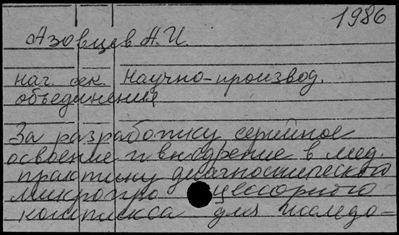 1986
Азовцев А.И.
нач. сек. Научно-производ.
объединения
За разработку, серийное
освоение и внедрение в мед.
практику диагностического
микропроцессорного
комплекса для исследо-